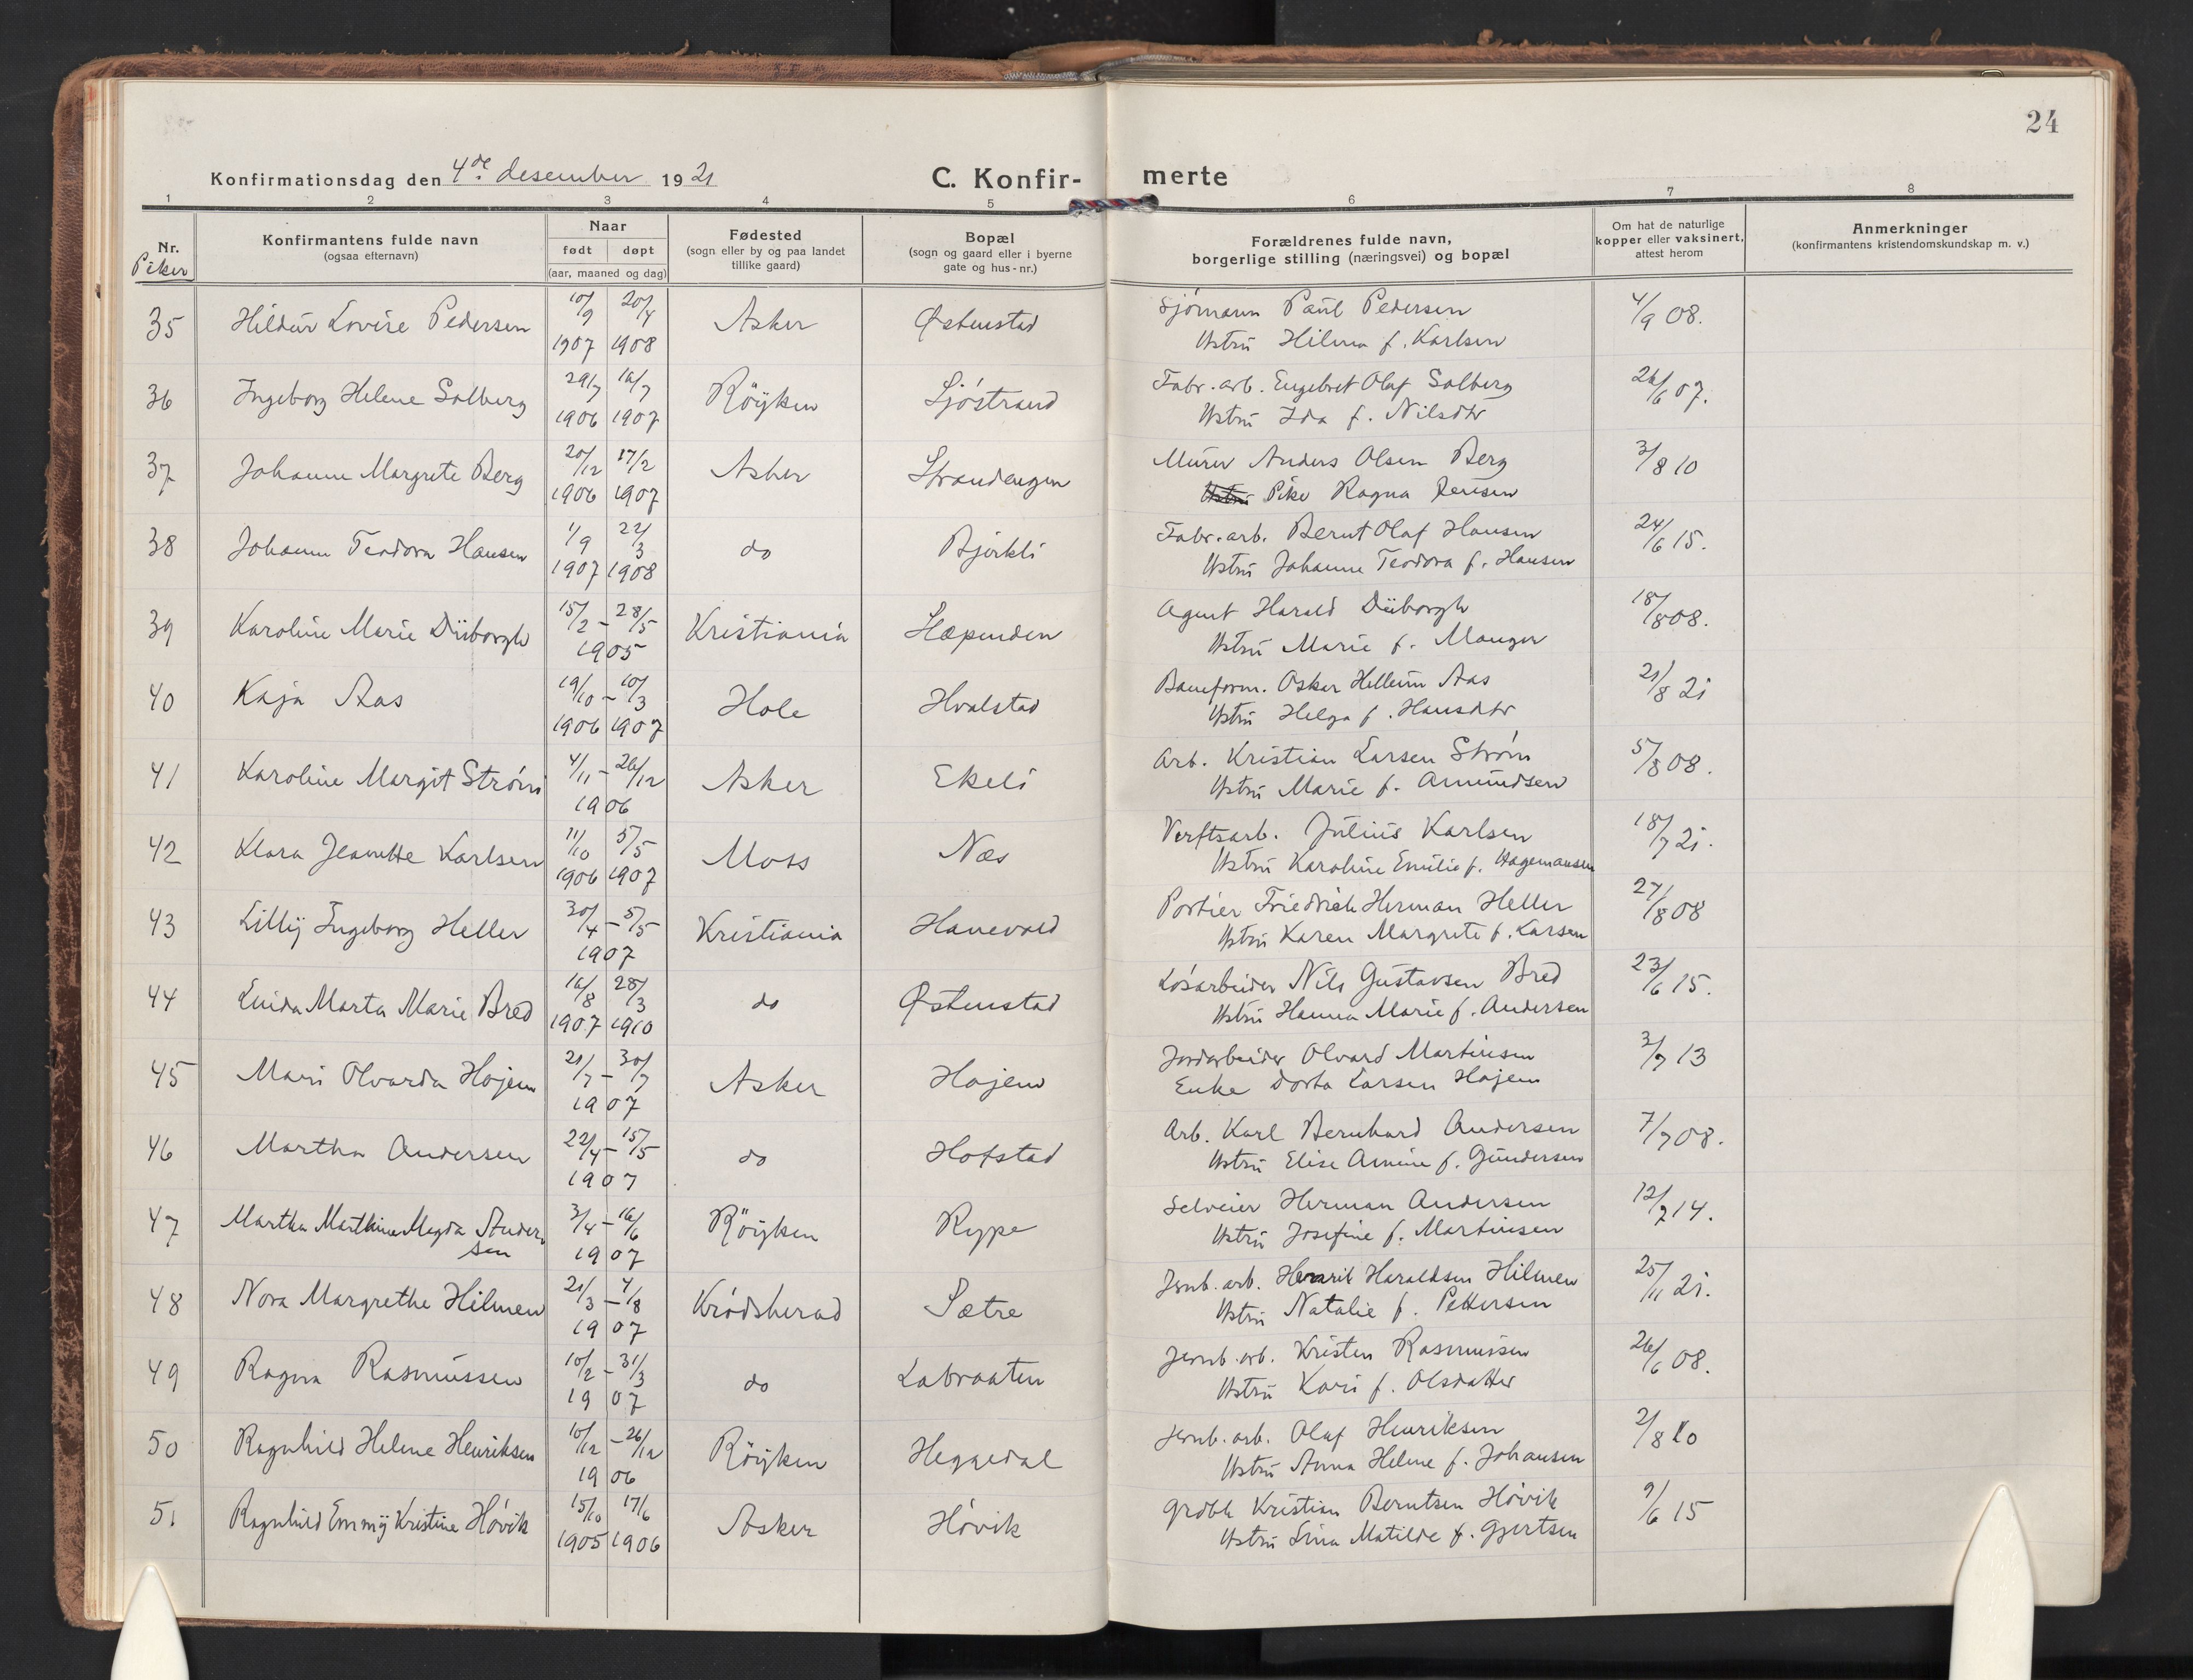 24
Konfirmationsdag den 4de desember 1921
C. Konfir-merte
1 2 3 4 5 6 7 8
Nr. Piker
Konfirmantens fulde navn (ogsaa efternavn)
Naar født døpt (aar, maaned og dag)
Fødested (sogn eller by og paa landet tillike gaard)
Bopæl (sogn og gaard eller i byerne gate og hus-nr.)
Forældrenes fulde navn, borgerlige stilling (næringsvei) og bopæl
Om hat de naturlige kopper eller vaksinert, attest herom
Anmerkninger (konfirmantens kristendomskundskap m. v.)
35 Hildur Lovise Pedersen 10/9 1907 20/4 1908 Asker Østenstad Sjömann Paul Pedersen 4/9 08.
Ustru Hilma f. Karlsen
36 Ingeborg Helene Solberg 29/7 1906 16/7 1907 Röyken Sjöstrand Fabr. arb. Engebret Olaf Solberg 26/6 07.
Ustru Ida f. Nilsdtr
37 Johanne Margrete Berg 20/12 1906 17/2 1907 Asker Strandengen Murer Anders Olsen Berg 3/8 10
Pike Ragna Jensen
38 Johanne Teodora Hansen 1/9 1907 22/3 1908 do Björkli Fabr. arb. Bernt Olaf Hansen 24/6 15.
Ustru Johanne Teodora f. Hansen
39 Karoline Marie Düborgh 15/2 - 28/5 1905 Kristiania Hæpenden Agent Harald Düborgh 18/8 08.
Ustru Marie f. Manger
40 Kaja Aas 19/10 1906 - 10/3 1907 Hole Hvalstad Baneform. Oskar Hellem Aas 21/8 21
Ustru Helga f. Hansdtr
41 Karoline Margit Ström 4/11 - 26/12 1906 Asker Ekeli Arb. Kristian Larsen Ström 5/8 08.
Ustru Marie f. Amundsen
42 Klara Jeanette Karlsen 11/10 1906 5/5 1907 Moss Næs Verftsarb. Julius Karlsen 18/7 21.
Ustru Karoline Emilie f. Hagemansen
43 Lilly Ingeborg Heller 30/4 - 5/5 1907 Kristiania Hanevold Portier Friedrich Herman Heller 27/8 08
Ustru Karen Margrete f. Larsen
44 Marta Marie Bred 16/8 1907 28/3 1910 do Østenstad Lösarbeider Nils Gustavsen Bred 23/6 15.
Ustru Hanna Marie f. Andersen
45 Mari Olvarda Hojem 21/7 - 30/7 1907 Asker Hojem Jordarbeider Olvard Martinsen 3/7 13
Enke Dorta Larsen Hojem
46 Martha Andersen 22/4 - 15/5 1907 do Hofstad Arb. Karl Bernhard Andersen 7/7 08.
Ustru Elise Amine f. Gundersen
47 Martha Marthine Magda Andersen 3/4 - 16/6 1907 Röyken Rype Selveier Herman Andersen 12/7 14.
Ustru Josefine f. Martinsen
48 Nora Margrethe Hilmen 21/3 - 4/8 1907 Krödsherad Sætre Jernb. arb. Henrik Haraldsen Hilmen 25/11 21.
Ustru Natalie f. Pettersen
49 Ragna Rasmussen 10/2 - 31/3 1907 do Labraaten Jernb. arb. Kristen Rasmussen 26/6 08.
Ustru Kari f. Olsdatter
50 Ragnhild Helene Henriksen 10/12 - 26/12 1906 Röyken Heggedal Jernb. arb. Olaf Henriksen 2/8 10
Ustru Anna Helene f. Johansen
51 Ragnhild Emmy Kristine Hövik 15/10 1905 17/6 1906 Asker Hövik Grdbr Kristian Berntsen Hövik 9/6 15
Ustru Lina Matilde f. Gjertsen